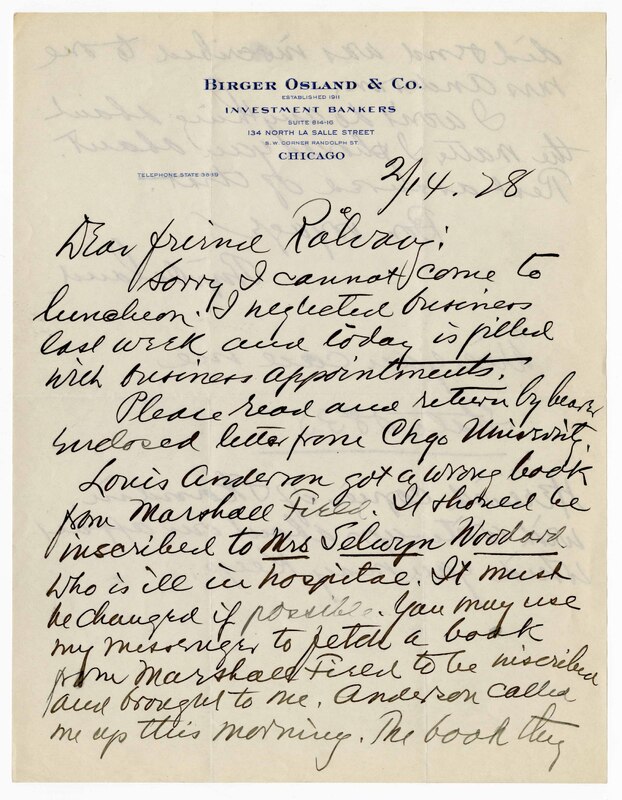 BIRGER OSLAND & CO.
ESTABLISHED 1911
INVESTMENT BANKERS
SUITE 814-16
134 NORTH LA SALLE STREET
S.W. CORNER RANDOLPH ST.
CHICAGO
TELEPHONE, STATE 3819
2/14.28
Dear friend Rölvaag:
Sorry I cannot come to
luncheon. I neglected business
last week and today is filled
with business appointments.
Please read and return by bearer
enclosed letter from Chgo University.
Louis Anderson got a wrong book
from Marshall Field. It should be
inscribed to Mrs Selwyn Woodard
who is ill in hospital. It must
be changed if possible. You may use
my messenger to fetch a book
from Marshall Field to be inscribed
and brought to me. Anderson called
me up this morning. The book they